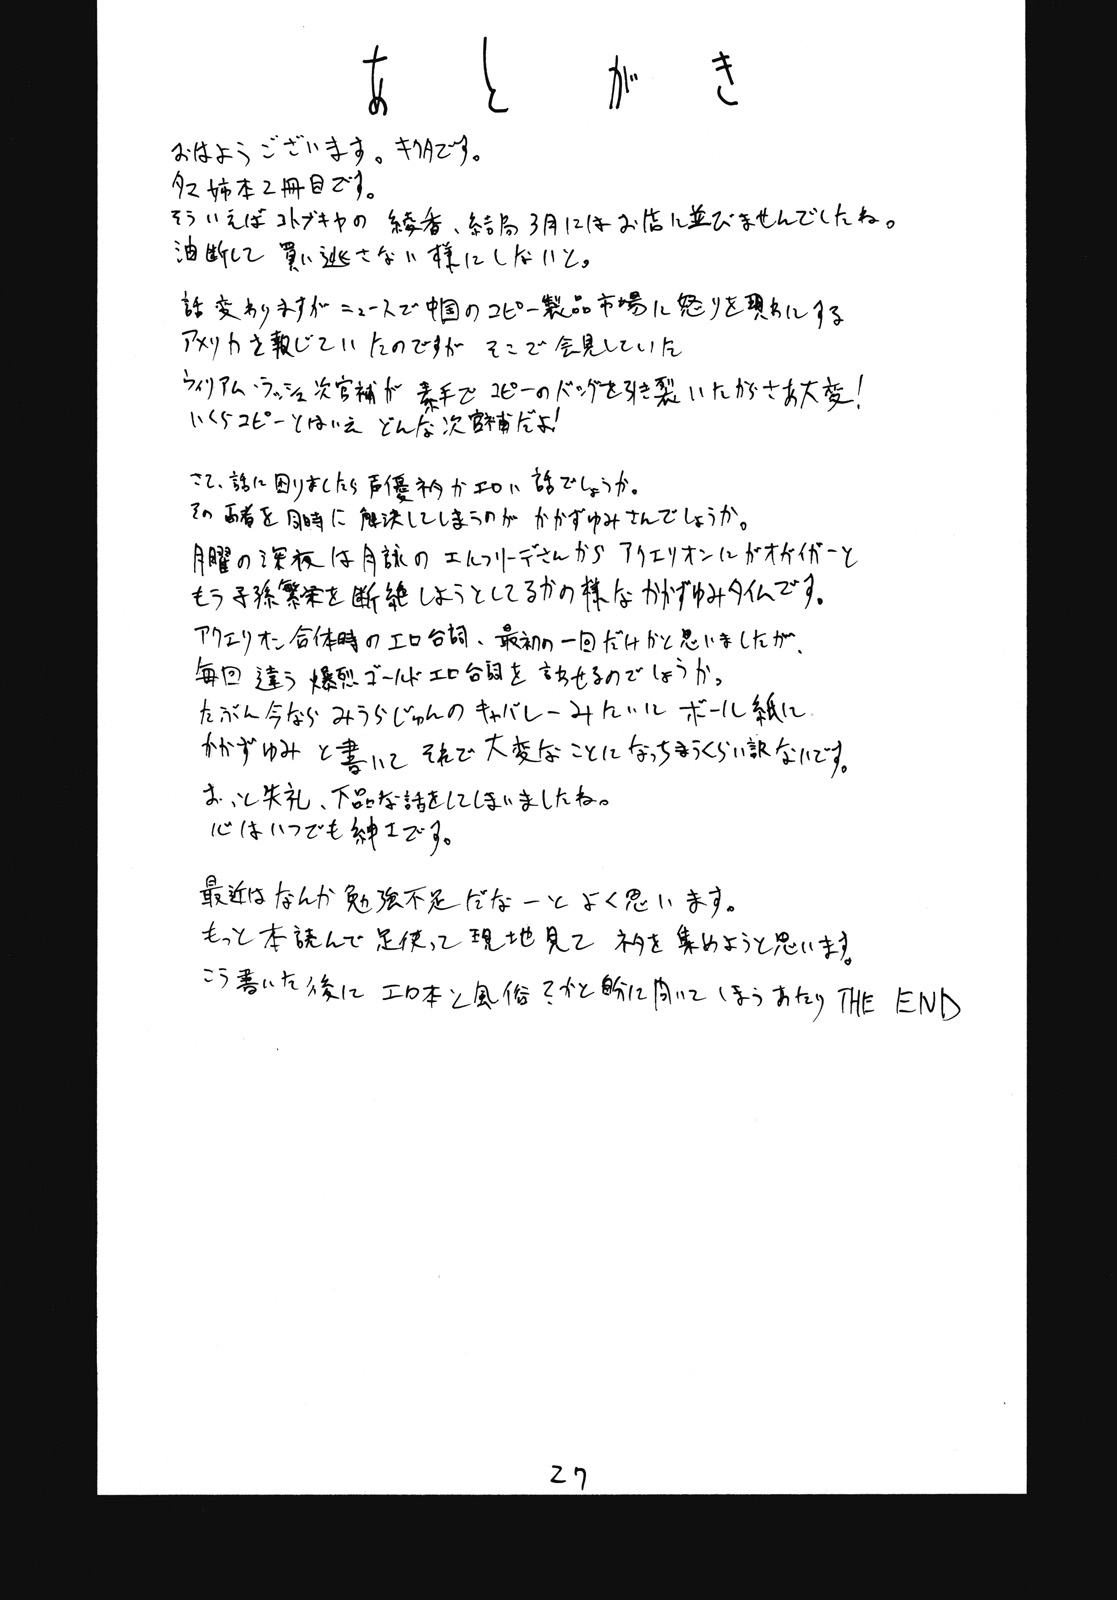 あとがき
おはようございます。キクタです。
タマ姉本2冊目です。
そういえばコトブキヤの 綾香、結局3月にはお店に並びませんでしたね。
油断して 買い逃さない様にしないと。
話変わりますがニュースで中国のコピー製品市場に怒りを現わにする
アメリカを報じていたのですが そこで会見していた
ウィリアム・ラッシュ次官補が 素手で コピーのバッグを引き裂いたからさあ大変!
いくらコピーとはいえ どんな次官補だよ!
さて、話に困りましたら声優ネタかエロい話でしょうか。
その両者を同時に 解決してしまうのが かかずゆみさんでしょうか。
月曜の深夜は月詠の エルフリーデさんから アクエリオンにガオガイガーと
もう子孫繁栄を断絶しようとしてるかの様なかかずゆみタイムです。
アクエリオン合体時のエロ台詞、最初の一回だけかと思いましたが、
毎回 違う 爆烈ゴールドエロ台詞を 言わせるのでしょうか。
たぶん今なら みうらじゅんの キャバレーみたいに ボール紙に
かかずゆみ と書いて それで大変なことになっちまうくらい訳ないです。
おっと失礼、下品な話をしてしまいましたね。
心はいつでも紳士です。
最近はなんか勉強不足だなーと よく思います。
もっと本読んで足使って現地見て ネタを集めようと思います。
こう書いた後に エロ本と風俗?かと 自分に聞いて しまうあたり THE END
27